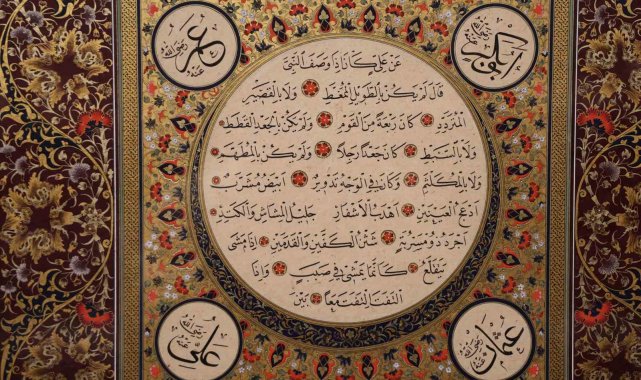 ابو بكر رضي الله عنه
عمر رضي الله عنه
عَنْ عَلِيٍّ كَانَ اِذَا وَصَفَ النَّبِيَّ
قَالَ لَمْ يَكُنْ بِالطَّوِيلِ الْمُمَّغِطِ وَلَا بِالْقَصِيرِ
الْمُتَرَدِّدِ كَانَ رَبْعَةً مِنَ الْقَوْمِ وَلَمْ يَكُنْ بِالْجَعْدِ الْقَطَطِ
وَلَا بِالسَّبِطِ كَانَ جَعْدًا رَجِلًا وَلَمْ يَكُنْ بِالْمُطَهَّمِ
وَلَا بِالْمُكَلْثَمِ وَكَانَ فِي الْوَجْهِ تَدْوِيرٌ اَبْيَضُ مُشْرَبٌ
اَدْعَجُ الْعَيْنَيْنِ اَهْدَبُ الْاَشْفَارِ جَلِيلُ الْمُشَاشِ وَالْكَتَدِ
اَجْرَدُ ذُو مَسْرُبَةٍ شَثْنُ الْكَفَّيْنِ وَالْقَدَمَيْنِ اِذَا مَشَى
يَتَقَلَّعُ كَاَنَّمَا يَمْشِي فِي صَبَبٍ وَاِذَا
الْتَفَتَ الْتَفَتَ مَعًا بَيْنَ
عثمان رضي الله عنه
علي رضي الله عنه